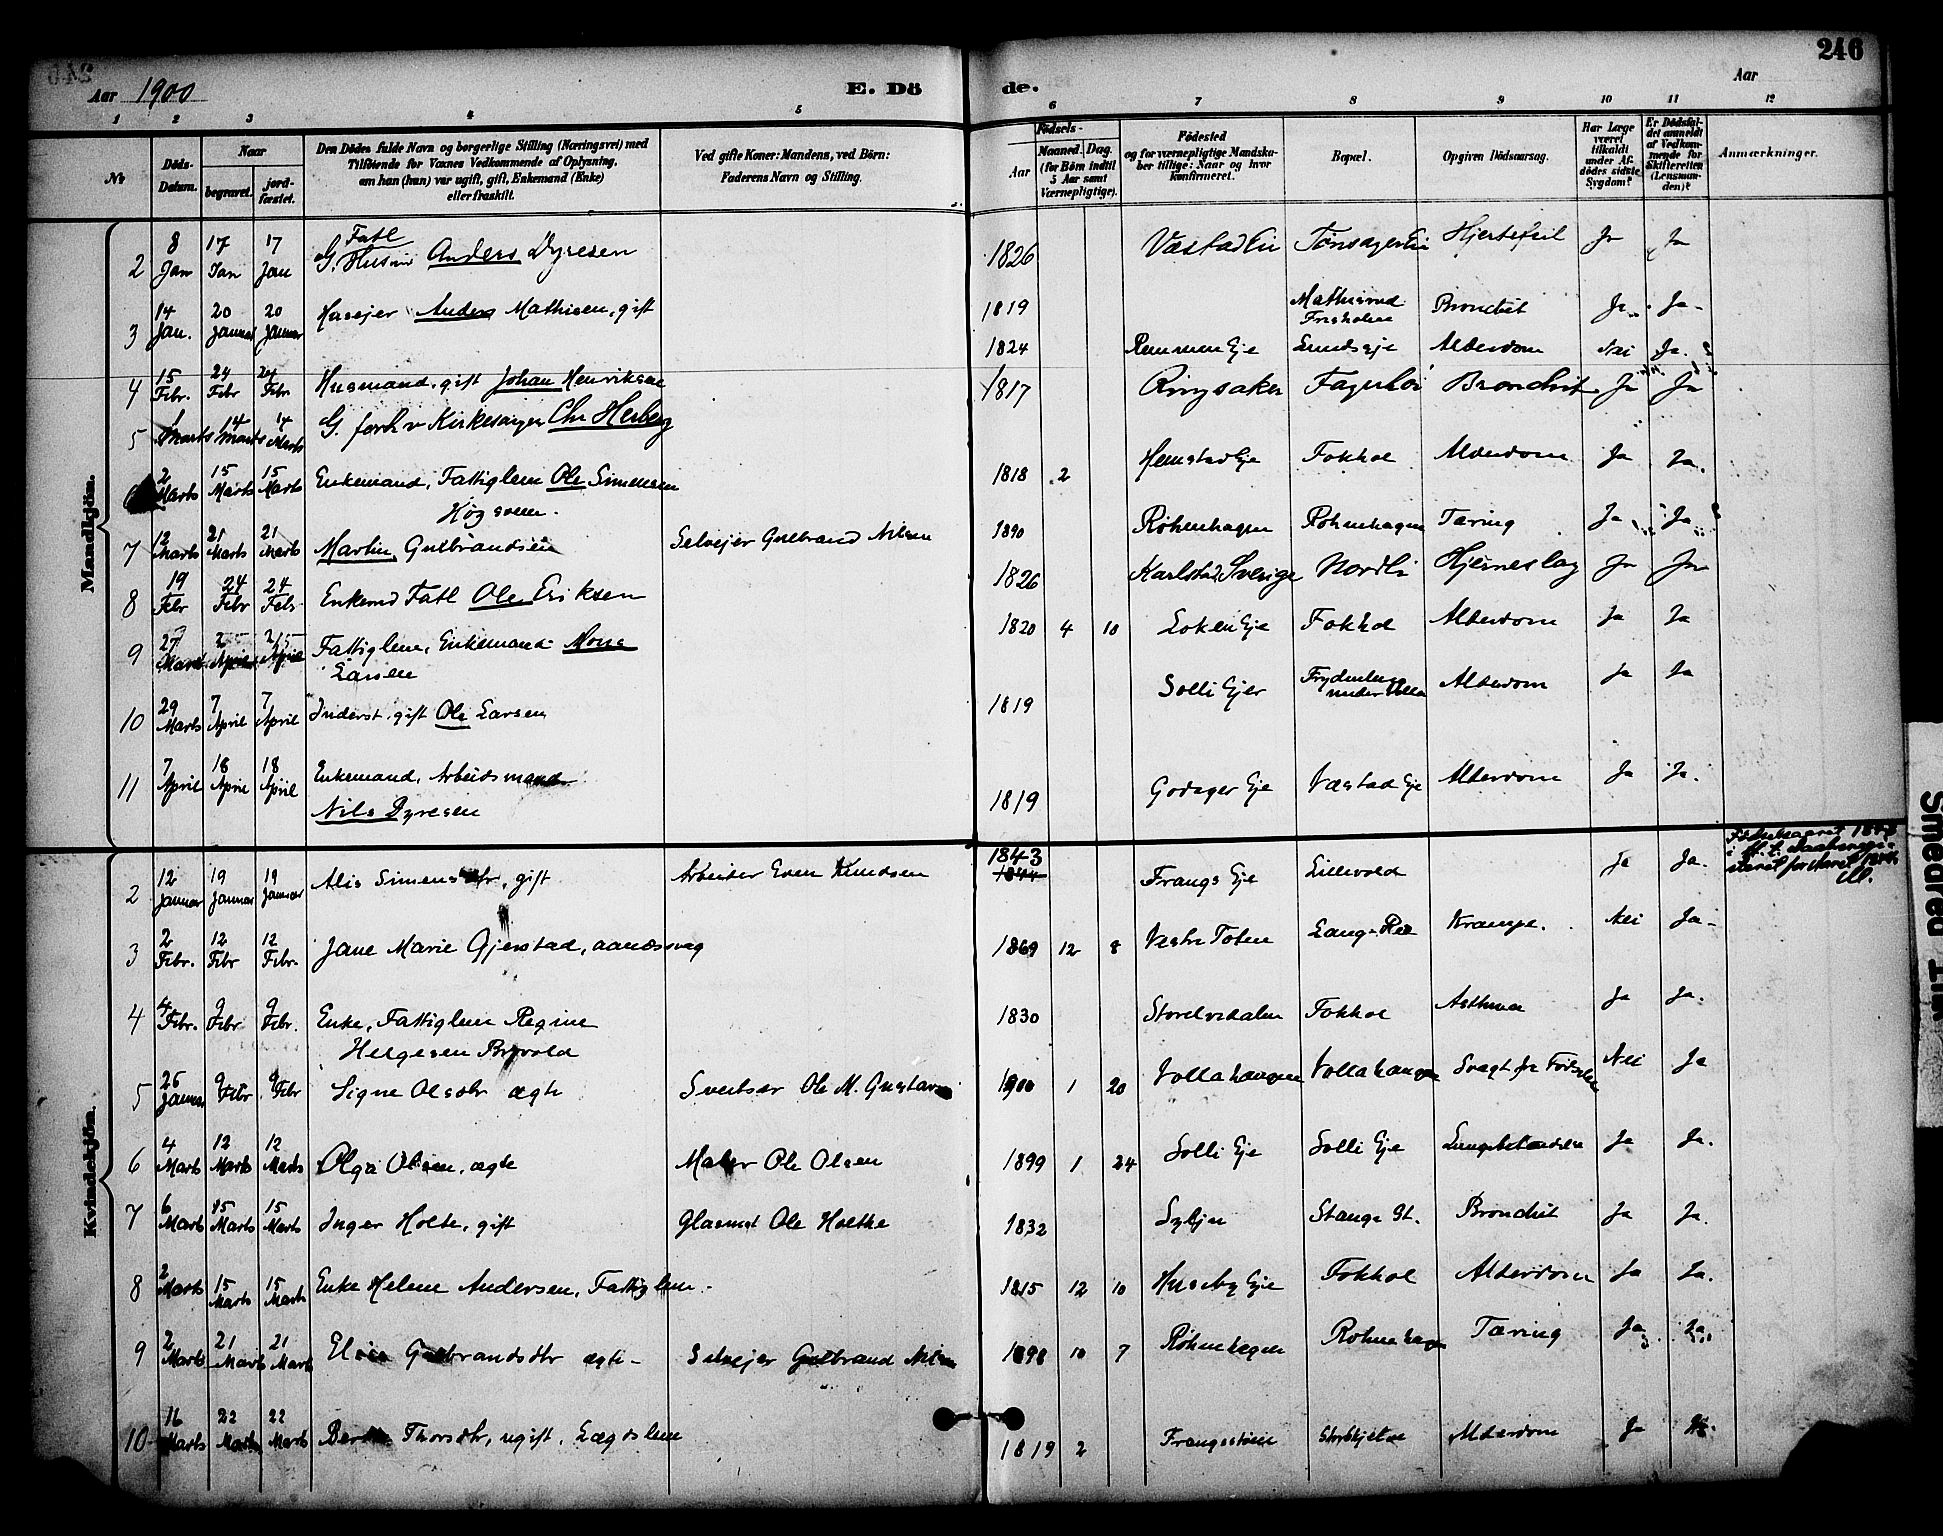 246
Aar 1900 E. Dö de. Aar
1 2 3 4 5 6 7 8 9 10 11 12
No
Döds-Datum.
Naar
begravet.
jord-fæstet.
Den Dödes fulde Navn og borgerlige Stilling (Næringsvei) med
Tilföiende for Voxnes Vedkommende af Oplysning,
om han (hun) var ugift, gift, Enkemand (Enke)
eller fraskilt.
Ved gifte Koner: Mandens, ved Börn:
Faderens Navn og Stilling.
Födsels-
Aar
Maaned. Dag.
(for Börn indtil
5 Aar samt
Værnepligtige).
Födested
og for værnepligtige Mandska-
ber tillige: Naar og hvor
konfirmeret.
Bopæl.
Opgiven Dödsaarsag.
Har Læge
været
tilkaldt
under Af-
dödes sidste
Sygdom?
Er Dödsfal-
det anmeldt
af Vedkom-
mende for
Skifteretten
(Lensman-
den)?
Anmærkninger.
Mandkjön.
2 8 Jan 17 Jan 17 Jan G. Husm Fatl Anders Dyresen 1826 Væstad Eie Tønsager Ei Hjertefeil Ja Ja
3 14 Jan. 20 Januar 20 Januar Huseier Anders Mathisen, gift 1819 Bronchit Ja Ja
4 15 Febr. 24 Febr 24 Febr Husmand, gift Johan Henriksen 1824 Remmen Eje Lundseje Alderdom Nei Ja.
5 Marts 14 Marts 14 Marts G. forh v Kirkesanger Chr Herberg 1817 Ringsaker Fagerhøi Bronchit Ja Ja
2 Marts 15 Marts 15 Marts Enkemand, Fattiglem Ole Simensen 1818 2 Hemstad Eje Fokhol Alderdom Ja Ja.
Høgsveen.
7 12 Marts 21 Marts 21 Marts Martin Gulbrandsen Selvejer Gulbrand Nilsen 1890 Røhnehagen Røhnehagen Tæring Ja Ja
8 19 Febr 24 Febr 24 Febr Enkemd Fatl Ole Eriksen 1826 Karlstad, Sverige Nordli Hjerneslag Ja Ja
9 27 Marts April April Fattiglem, Enkemand Mons 1820 4 10 Løken Eje Fokhol Alderdom Ja Ja
Larsen
10 29 Marts 7 April 7 April Inderst, gift Ole Larsen 1819 Solli Ejer Frydenlung under Alderdom Ja Ja
11 7 April 18 April 18 April Enkemand, Arbeidsmand 1819 Godager Eje Væstad Eje Alderdom Ja Ja.
Nils Dyresen
Kvindekjön.
2 12 Januar 19 Januar 19 Januar Alis Simensdtr, gift Arbeider Even Knudsen 1843 1844 Frangs Eje Lillevold Ja Ja.
3 2 Febr. 12 Febr 12 Febr. Jane Marie Gjerstad, aandssvag 1869 12 8 Vestre Toten Lange-Ree Krampe. Nei Ja
4 4 Febr. 9 Febr 9 Febr. Enke, Fattiglem Regine 1830 Storelvedalen Fokhol Asthma Ja Ja.
Helgesen Byvold
5 26 Januar 9 Febr 9 Febr Signe Olsdtr ægte Sveitser Ole M. Gustavsen 1900 1 20 Vollahaugen Vollahaugen Svagt fra Fødselen Nei Ja
6 4 Marts 12 Marts 12 Marts Olga Olsen, ægte Maler Ole Olsen 1899 1 24 Solli Eje Solli Eje Lungebetændelse Ja Ja.
7 6 Marts 15 Marts 15 Marts Inger Holte, gift Glasmst Ole Holthe 1832 Stange St. Bronchit Ja Ja.
8 2 Marts 15 Marts 15 Marts Enke Helene Andersen, Fattiglem. 1815 12 10 Huseby Eje Fokhol Alderdom Ja Ja.
9 2 Marts 21 Marts 21 Marts Gulbrandsdtr ægte Selvejer Gulbrand Nilsen 1898 10 7 Røhnehagen Røhnehagen Tæring Ja Ja
10 16 Marts 22 Marts 22 Marts Thorsdtr, ugift, Lægdslem 1819 2 Alderdom Ja